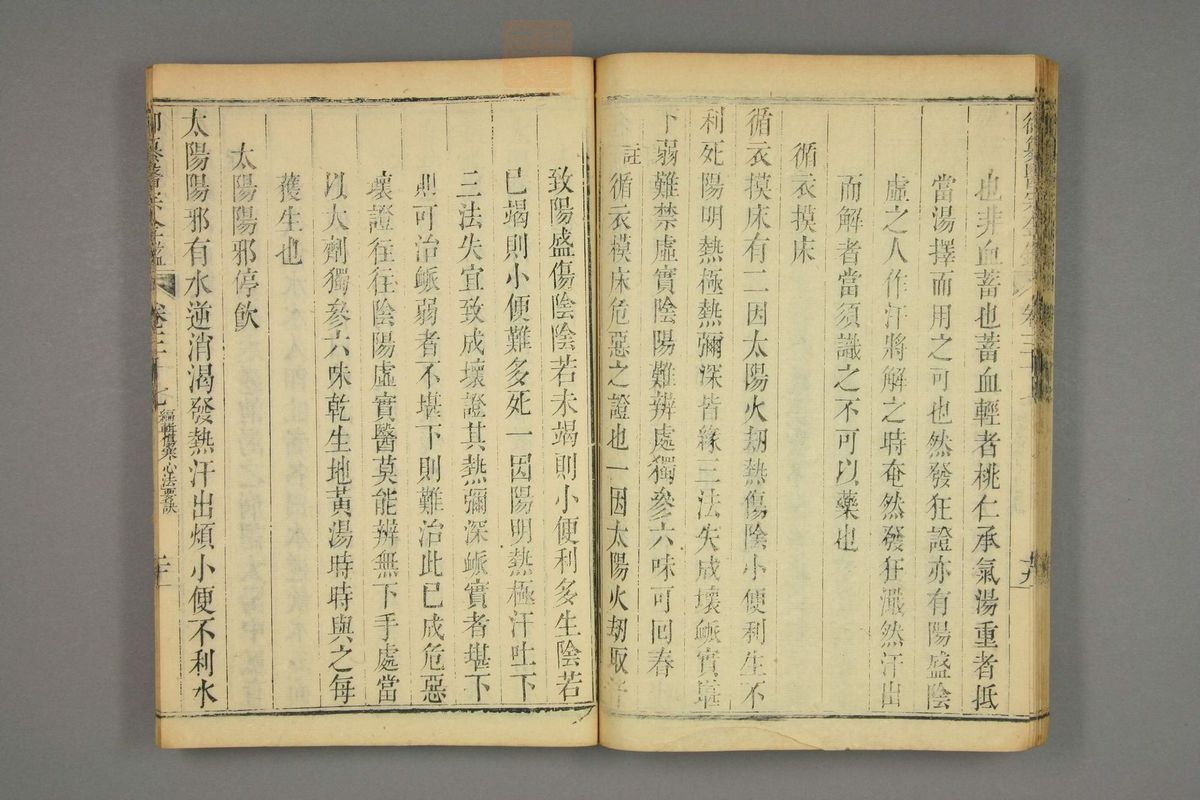 也非血蓄也蓄血輕者桃仁承氣湯重者抵
當湯擇而用之可也然發狂證亦有陽盛陰
虛之人作汗將解之時奄然發狂濈然汗出
而解者當須識之不可以藥也
循衣摸床
循衣摸床有二因太陽火劫熱傷陰小便利生不
利死陽明熱極熱彌深皆緣三法失成壞䘑實堪
下弱難禁虛實陰陽難辨處獨參六味可回春
註循衣模床危惡之證也一因太陽火劫取汗
致陽盛傷陰陰若未竭則小便利多生陰若
已竭則小便難多死一因陽明熱極汗吐下
三法失宜致成壞證其熱彌深䘑實者堪下
則可治䘑弱者不堪下則難治此已成危惡
壞證往往陰陽虛實醫莫能辨無下手處當
以大劑獨參六味乾生地黃湯時時與之每
獲生也
太陽陽邪停飲
太陽陽邪有水逆消渴發熱汗出煩小便不利水
御纂醫宗金鑑 卷三十七 編輯傷寒心法要訣 二十